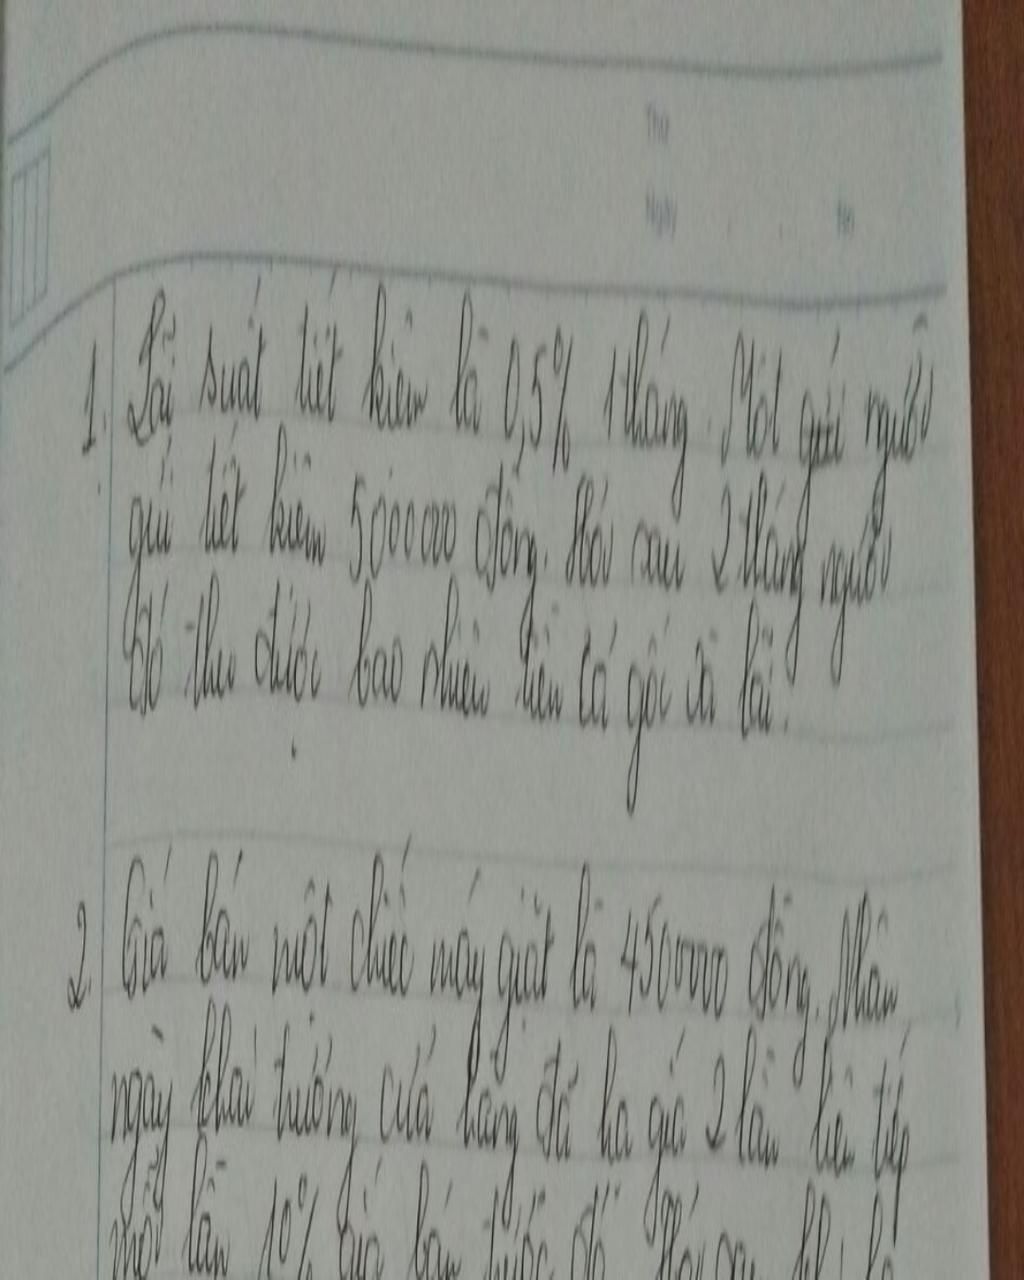 Thứ
Ngày No
1. Lãi suất tiết kiệm là 0,5% 1 tháng. Một gửi người
gửi tiết kiệm 5000000 đồng. Hỏi sau 2 tháng người
đó thu được bao nhiêu tiền cả gốc và lãi.
2. Giá bán một chiếc máy giặt là 4500000 đồng. Nhân
ngày khai trường cửa hàng đã hạ giá 2 lần liên tiếp
mỗi lần 10% giá bán trước đó. Hỏi sau khi hạ